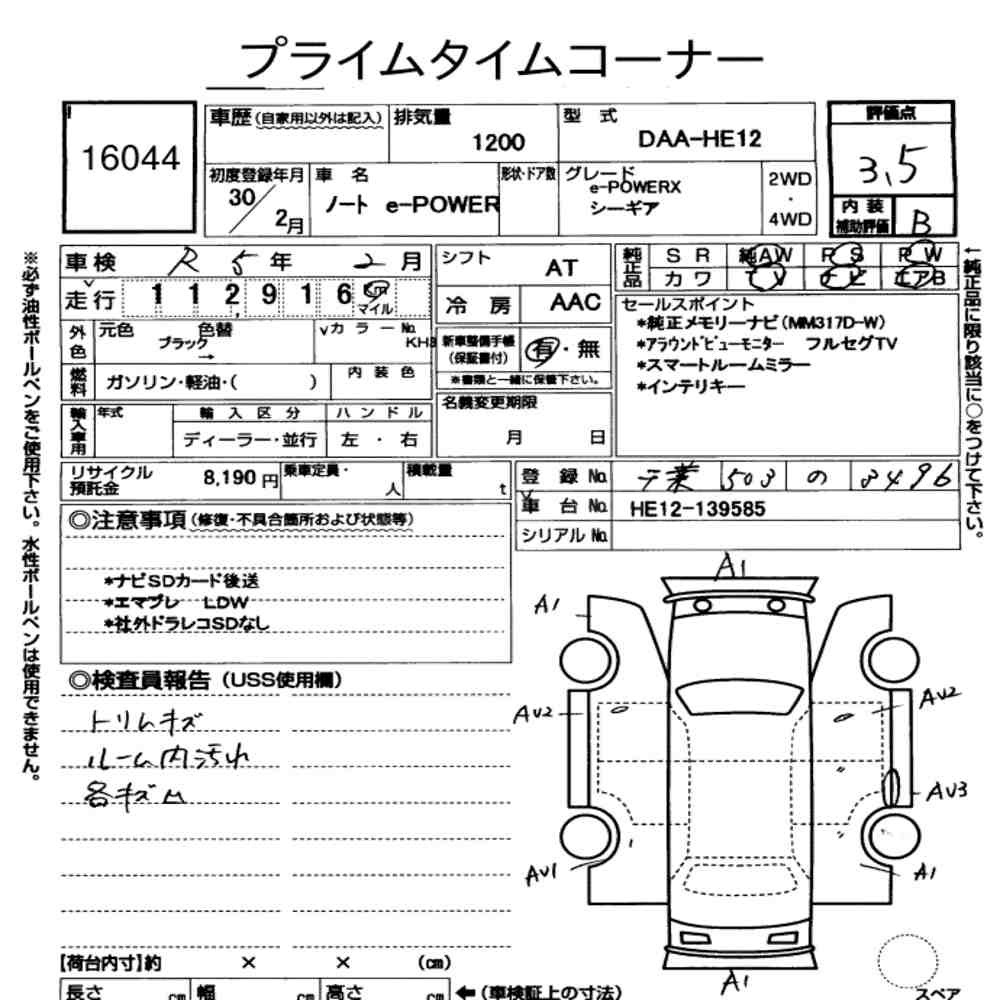 プライムタイムコーナー
16044
車歴(自家用以外は記入)
排気量
1200
型 式
DAA-HE12
評価点
3.5
初度登録年月
30/2月
車 名
ノート e-POWER
形状・ドア数
グレード
e-POWERX
シーギア
2WD
・
4WD
内 装
補助評価
B
車検 R 5 年 2 月
シフト
AT
純正品
S R
純AW
P S
P W
カ ワ
T V
ナ ビ
エアB
走行 112,916 km
マイル
冷 房
AAC
セールスポイント
*純正メモリーナビ(MM317D-W)
*アラウンドビューモニター フルセグTV
*スマートルームミラー
*インテリキー
外色
元色
色替
ブラック
→
カ ラ ー No.
KH3
新車整備手帳
(保証書付)
有・無
※書類と一緒に保管下さい。
燃料
ガソリン・軽油・( )
内 装 色
名義変更期限
月 日
輸入車用
年式
輸 入 区 分
ディーラー・並行
ハ ン ド ル
左 ・ 右
リサイクル
預託金
8,190 円
乗車定員・
人
積載量
t
登 録 No.
千葉 503 の 3496
車 台 No.
HE12-139585
シリアル No.
◎注意事項(修復・不具合箇所および状態等)
*ナビSDカード後送
*エマブレ LDW
*社外ドラレコSDなし
◎検査員報告(USS使用欄)
トリムキズ
ルーム内汚れ
各キズ凹
A1
A1
AV2
AV2
AV3
AV1
A1
A1
スペア
【荷台内寸】約 × × (cm)
長さ cm
幅 cm
高さ cm
←(車検証上の寸法)
※必ず油性ボールペンをご使用下さい。水性ボールペンは使用できません。
←純正品に限り該当に○をつけて下さい。